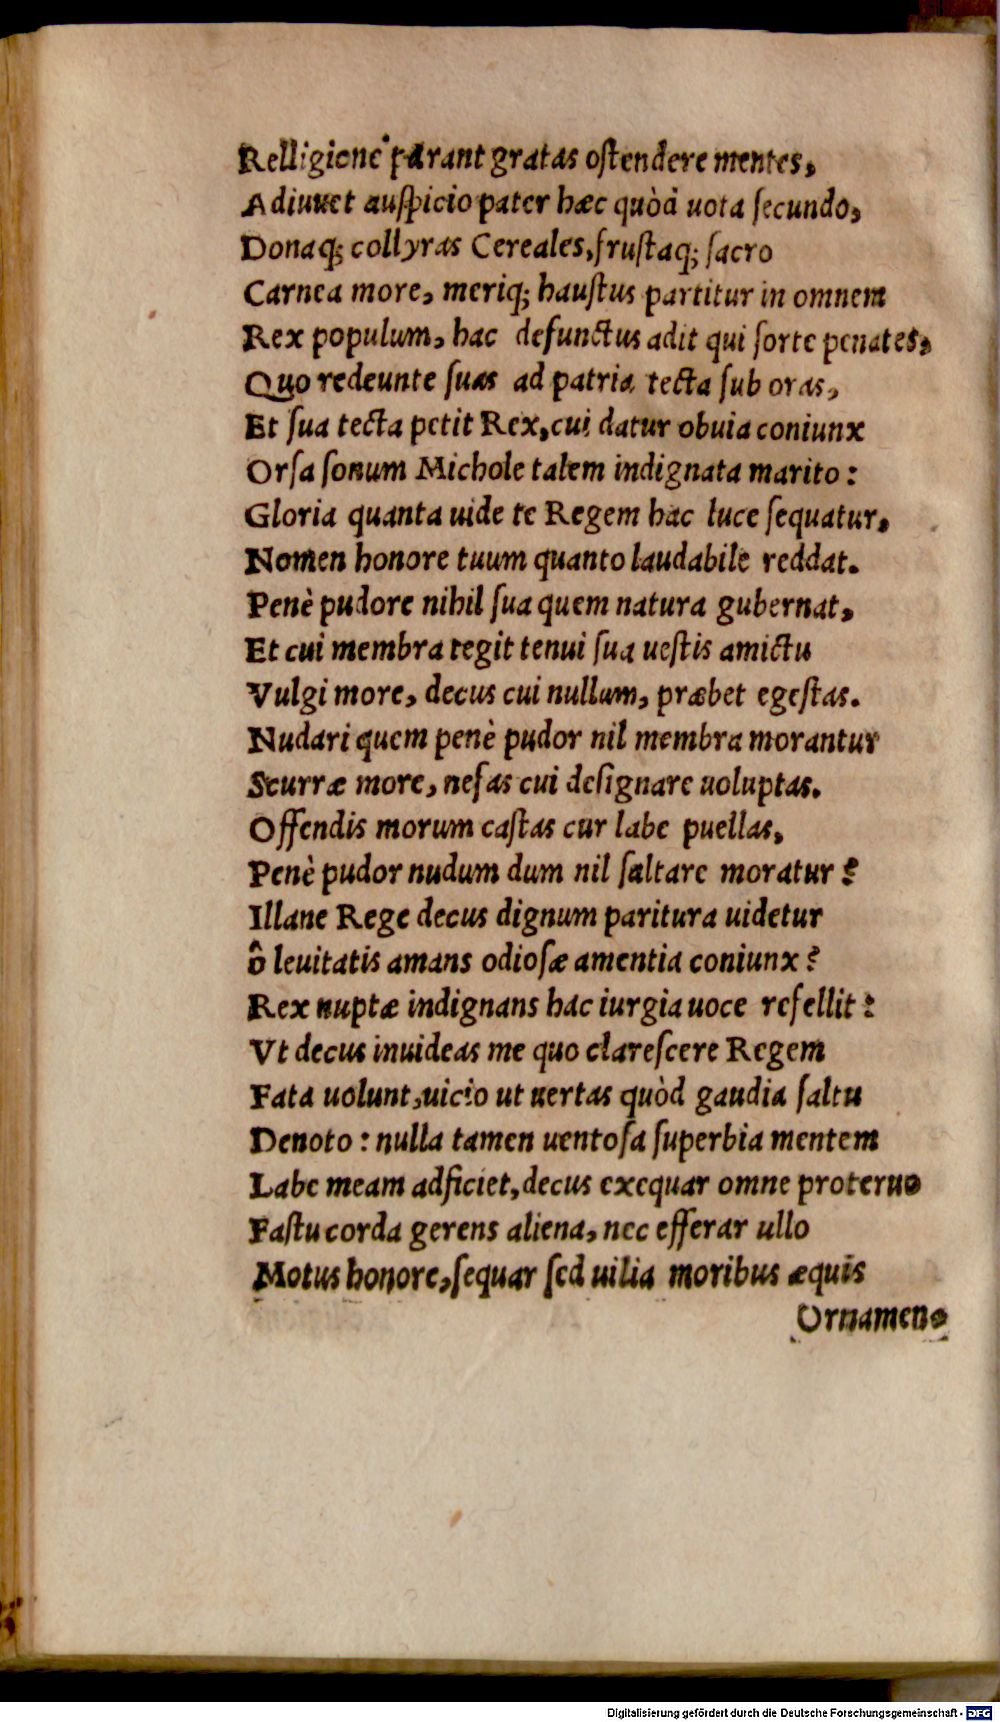 Relligione parant gratas ostendere mentes,
Adiuuet auspicio pater hæc quòd uota secundo,
Donaq; collyras Cereales, frustaq; sacro
Carnea more, meriq; haustus partitur in omnem
Rex populum, hac defunctus adit qui sorte penates,
Quo redeunte suas ad patria tecta sub oras,
Et sua tecta petit Rex, cui datur obuia coniunx
Orsa sonum Michole talem indignata marito:
Gloria quanta uide te Regem hac luce sequatur,
Nomen honore tuum quanto laudabile reddat.
Penè pudore nihil sua quem natura gubernat,
Et cui membra tegit tenui sua uestis amictu
Vulgi more, decus cui nullum, præbet egestas.
Nudari quem penè pudor nil membra morantur
Scurræ more, nefas cui designare uoluptas.
Offendis morum castas cur labe puellas,
Penè pudor nudum dum nil saltare moratur?
Illane Rege decus dignum paritura uidetur
ô leuitatis amans odiosæ amentia coniunx?
Rex nuptæ indignans hac iurgia uoce refellit:
Vt decus inuideas me quo clarescere Regem
Fata uolunt, uicio ut uertas quòd gaudia saltu
Denoto: nulla tamen uentosa superbia mentem
Labe meam adficiet, decus exequar omne proteruo
Fastu corda gerens aliena, nec efferar ullo
Motus honore, sequar sed uilia moribus æquis
Ornamen⸗
Digitalisierung gefördert durch die Deutsche Forschungsgemeinschaft - DFG